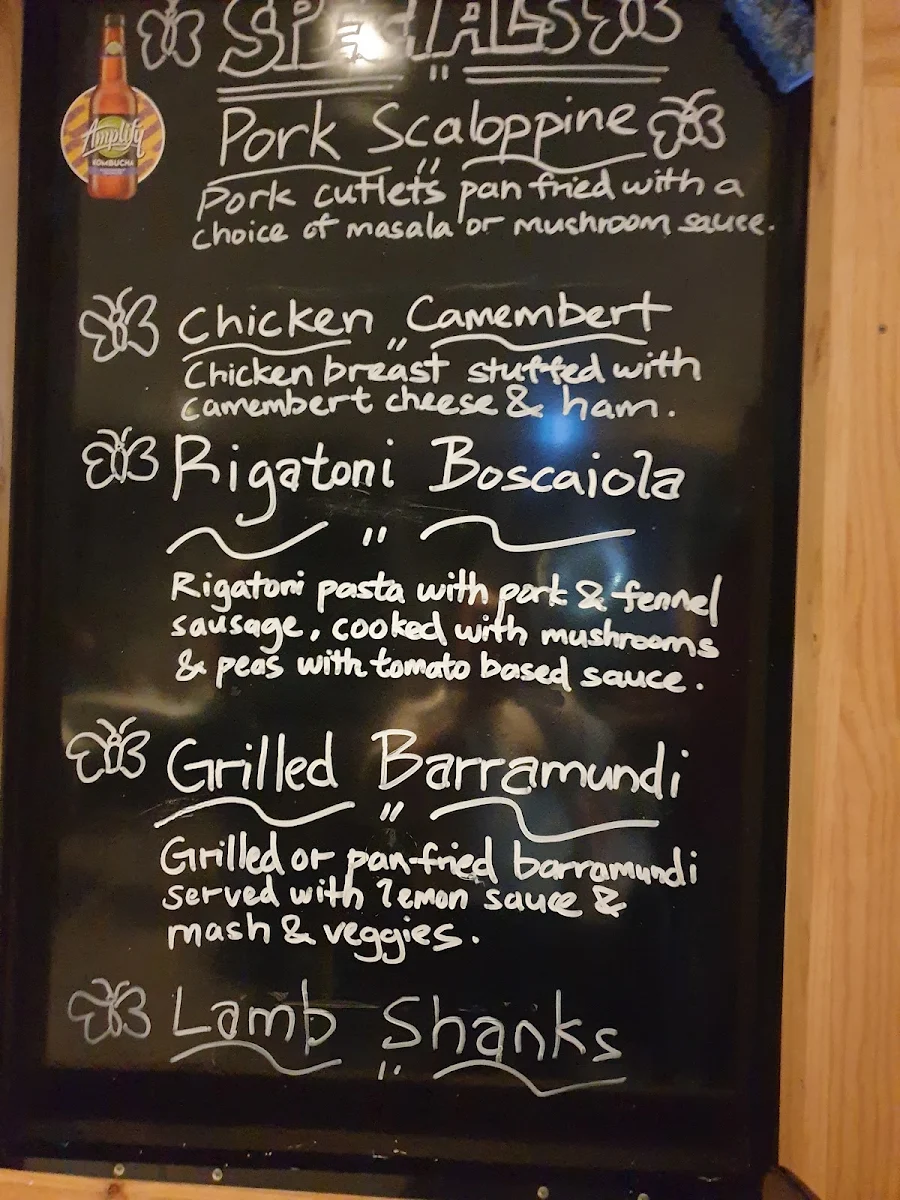 SPECIALS
Amplify
KOMBUCHA
Pork Scaloppine
Pork cutlets pan fried with a
choice of masala or mushroom sauce.
Chicken Camembert
Chicken breast stuffed with
camembert cheese & ham.
Rigatoni Boscaiola
Rigatoni pasta with pork & fennel
sausage, cooked with mushrooms
& peas with tomato based sauce.
Grilled Barramundi
Grilled or pan-fried barramundi
served with lemon sauce &
mash & veggies.
Lamb Shanks